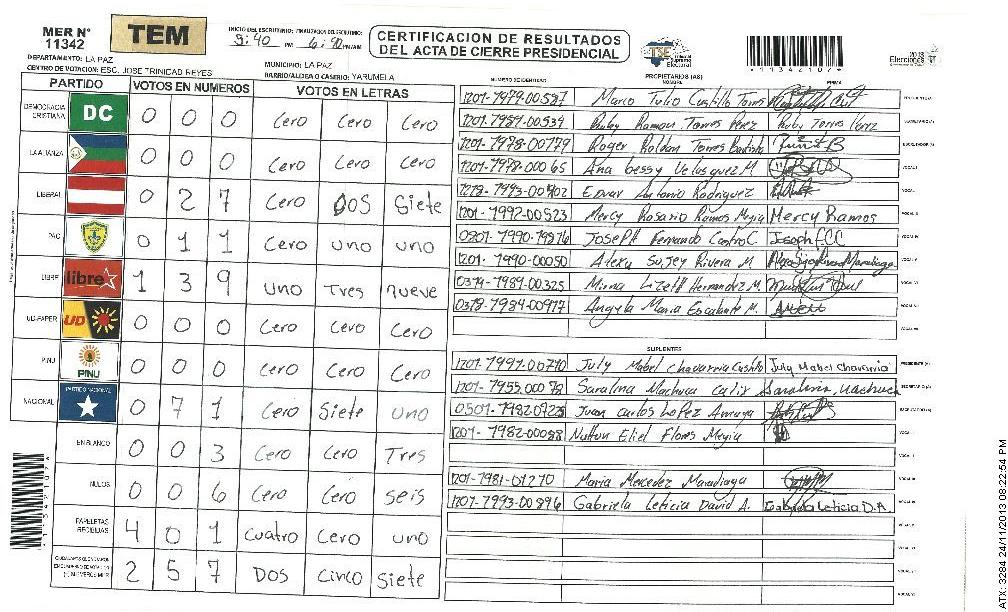 MER N° 11342
TEM
INICIO DEL ESCRUTINIO: FINALIZACION DEL ESCRUTINIO:
3:40 PM 6:40 PM/AM
CERTIFICACION DE RESULTADOS
DEL ACTA DE CIERRE PRESIDENCIAL
TSE Tribunal Supremo Electoral
2013 Elecciones
DEPARTAMENTO: LA PAZ
MUNICIPIO: LA PAZ
CENTRO DE VOTACION: ESC. JOSE TRINIDAD REYES
BARRIO/ALDEA O CASERIO: YARUMELA
PARTIDO VOTOS EN NUMEROS VOTOS EN LETRAS
DEMOCRACIA CRISTIANA DC 0 0 0 Cero Cero Cero
LA ALIANZA 0 0 0 Cero Cero Cero
LIBERAL 0 2 7 Cero DOS Siete
PAC 0 1 1 Cero uno uno
LIBRE libre 1 3 9 uno Tres nueve
UD-FAPER UD 0 0 0 Cero Cero Cero
PINU PINU 0 0 0 Cero Cero Cero
NACIONAL PARTIDO NACIONAL 0 7 1 Cero Siete uno
EN BLANCO 0 0 3 Cero Cero Tres
NULOS 0 0 6 Cero Cero seis
PAPELETAS RECIBIDAS 4 0 1 Cuatro Cero uno
2 5 7 DOS Cinco Siete
NUMERO DE IDENTIDAD PROPIETARIOS (AS) NOMBRE FIRMA
1201-1979-00587 Marco Tulio Castillo Torres
Ruby Ramon Torres Perez Ruby Torres Perez
1201-1978-00779 Roger Roldan Torres Bautista
1201-1978-00065 Ana bessy Velasquez M
Antonio Rodriguez
1201-1992-00523 Mercy Rosario Ramos Mejia Mercy Ramos
Joseph Fernando Castro C Joseph F.C.C
1201-1990-00050 Alexa Sujey Rivera M.
Mirna Lizeth Hernandez M
Angela Maria Escalante M.
SUPLENTES
July Mabel Chavarria Castillo July Mabel Chavarria
Saralina Machuca Calix Saralina Machuca
Juan Carlos Lopez Amaya
1201-1982-00088 Eliel Flores Mejia
1201-1981-01270 Maria Mercedez Maradiaga
1201-1993-00896 Gabriela Leticia David A. Gabriela Leticia D.A.
ATX: 3284 24/11/2013 08:22:54 PM